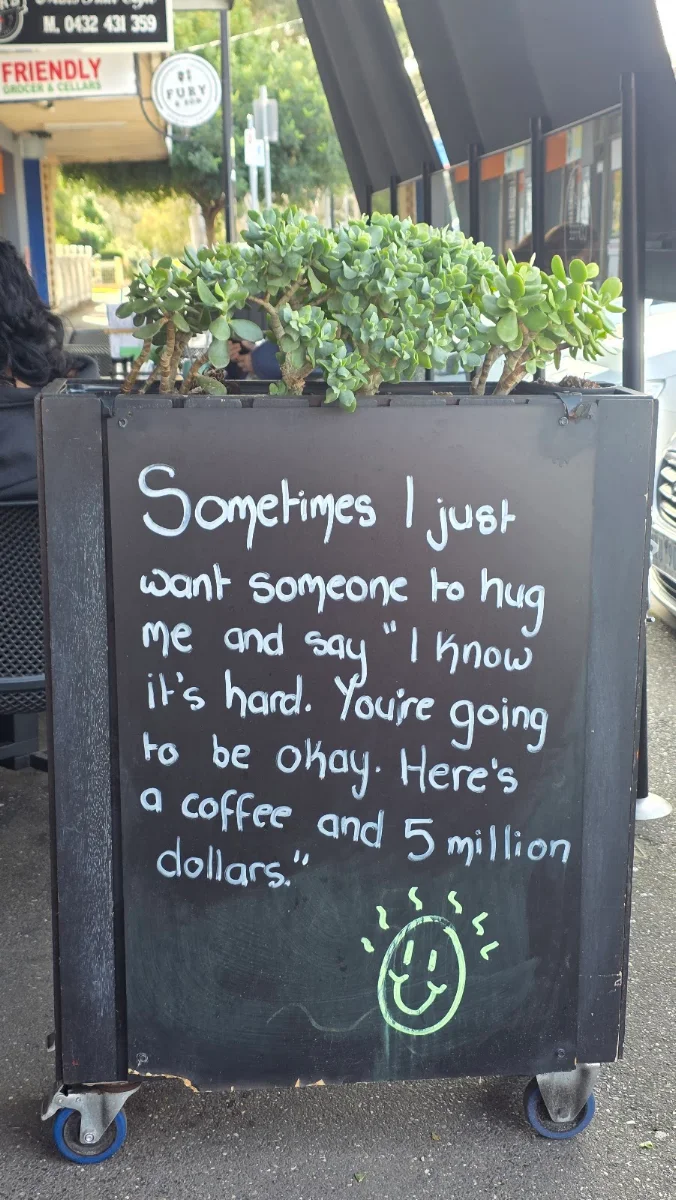 M. 0432 431 359
FRIENDLY
GROCER & CELLARS
FURY
& SON
Sometimes I just
want someone to hug
me and say "I know
it's hard. You're going
to be okay. Here's
a coffee and 5 million
dollars."